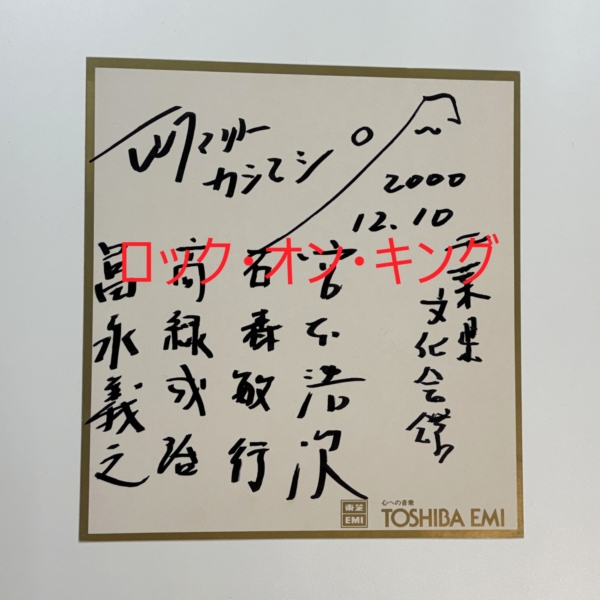 カシマシ
2000
12.10
千葉県
文化会館
宮本浩次
石森敏行
高緑成治
冨永義之
ロック・オン・キング
東芝
EMI
心への音楽
TOSHIBA EMI